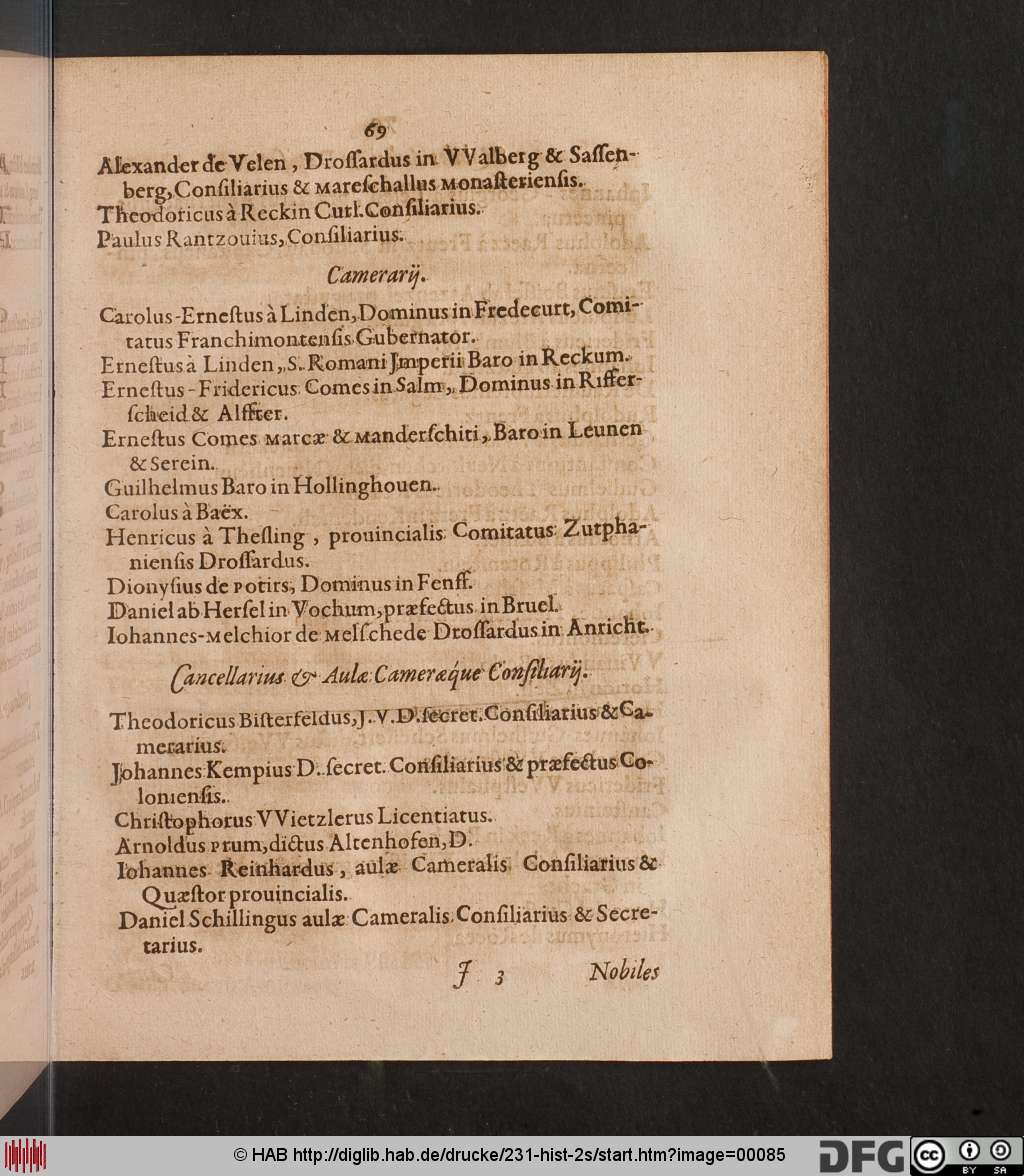 69
Alexander de Velen, Droſſardus in VValberg & Saſſen-
berg, Conſiliarius & Mareſchallus Monaſterienſis.
Theodoricus à Reckin Curl. Conſiliarius.
Paulus Rantzouius, Conſiliarius.
Camerarij.
Carolus-Erneſtus à Linden, Dominus in Fredecurt, Comi-
tatus Franchimontenſis Gubernator.
Erneſtus à Linden, S. Romani Jmperii Baro in Reckum.
Erneſtus-Fridericus Comes in Salm, Dominus in Riffer-
ſcheid & Alffter.
Erneſtus Comes Marcæ & Manderſchiti, Baro in Leunen
& Serein.
Guilhelmus Baro in Hollinghouen.
Carolus à Baëx.
Henricus à Theſling, prouincialis Comitatus Zutpha-
nienſis Droſſardus.
Dionyſius de Potirs, Dominus in Fenff.
Daniel ab Herſel in Vochum, præfectus in Bruel.
Iohannes-Melchior de Melſchede Droſſardus in Anricht.
Cancellarius & Aulæ Cameræq́ue Conſiliarij.
Theodoricus Biſterfeldus, J. V. D. ſecret. Conſiliarius & Ca-
merarius.
Johannes Kempius D. ſecret. Conſiliarius & præfectus Co-
lonienſis.
Chriſtophorus VVietzlerus Licentiatus.
Arnoldus Prum, dictus Altenhofen, D.
Iohannes Reinhardus, aulæ Cameralis Conſiliarius &
Quæſtor prouincialis.
Daniel Schillingus aulæ Cameralis Conſiliarius & Secre-
tarius.
J 3 Nobiles
© HAB http://diglib.hab.de/drucke/231-hist-2s/start.htm?image=00085
DFG cc BY SA